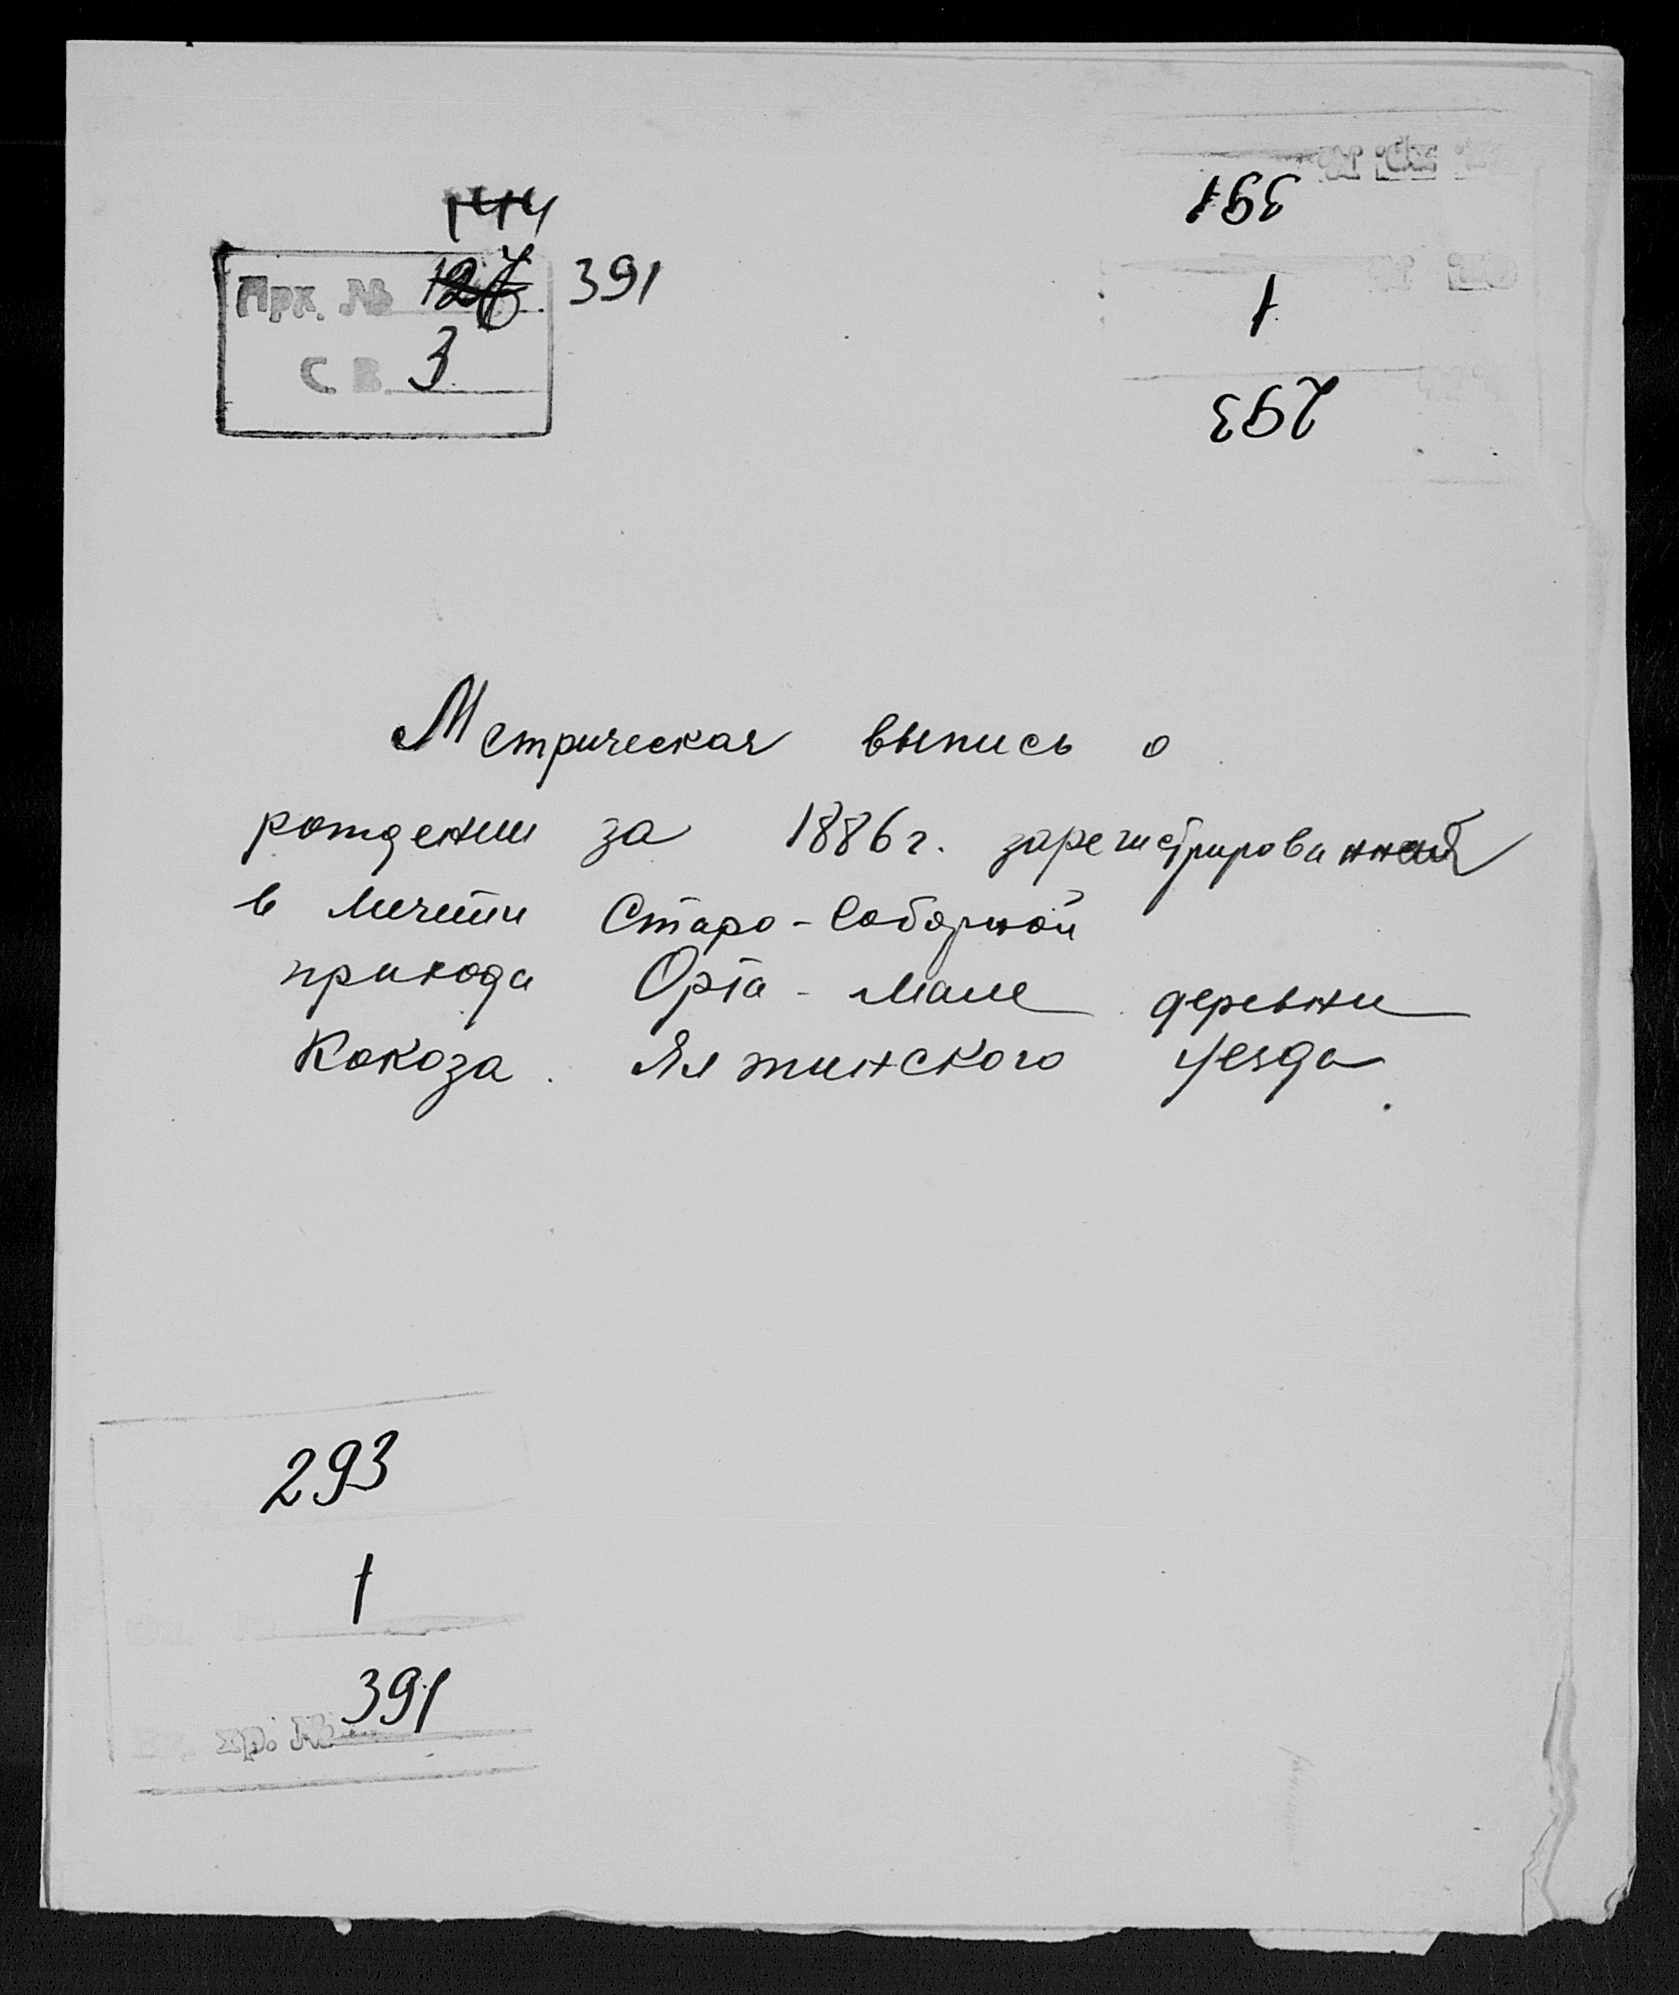 Арх. № 127 391
С В. 3
391
1
293
Метрическая выпись о
рождении за 1886 г. зарегистрированной
в мечети Старо-Соборной
прихода Орта-мале деревни
Кокоза. Ялтинского уезда.
293
1
391
хр. №